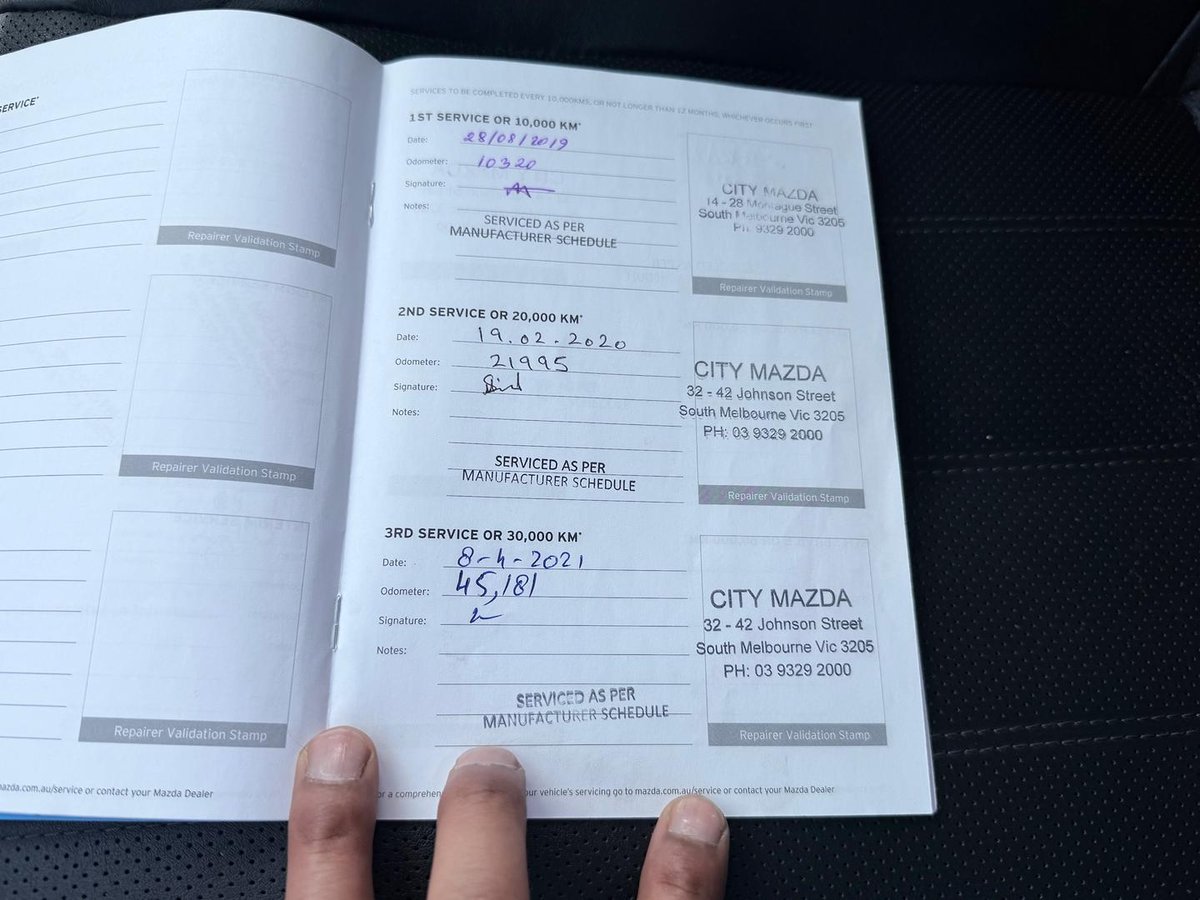 SERVICE*
Repairer Validation Stamp
Repairer Validation Stamp
Repairer Validation Stamp
mazda.com.au/service or contact your Mazda Dealer
SERVICES TO BE COMPLETED EVERY 10,000KMS, OR NOT LONGER THAN 12 MONTHS, WHICHEVER OCCURS FIRST
1ST SERVICE OR 10,000 KM*
Date: 28/08/2019
Odometer: 10320
Signature:
Notes:
SERVICED AS PER
MANUFACTURER SCHEDULE
CITY MAZDA
14 - 28 Montague Street
South Melbourne Vic 3205
PH: 9329 2000
Repairer Validation Stamp
2ND SERVICE OR 20,000 KM*
Date: 19.02.2020
Odometer: 21995
Signature:
Notes:
SERVICED AS PER
MANUFACTURER SCHEDULE
CITY MAZDA
32 - 42 Johnson Street
South Melbourne Vic 3205
PH: 03 9329 2000
Repairer Validation Stamp
3RD SERVICE OR 30,000 KM*
Date: 8-4-2021
Odometer: 45,181
Signature:
Notes:
SERVICED AS PER
MANUFACTURER SCHEDULE
CITY MAZDA
32 - 42 Johnson Street
South Melbourne Vic 3205
PH: 03 9329 2000
Repairer Validation Stamp
or a comprehen our vehicle's servicing go to mazda.com.au/service or contact your Mazda Dealer